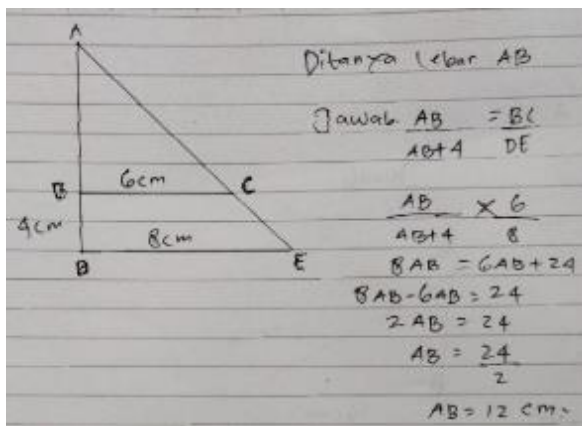 A
6cm
B
C
4cm
8cm
D
E
Ditanya lebar AB
Jawab AB/AB+4 = BC/DE
AB/AB+4 × 6/8
8AB = 6AB+24
8AB-6AB = 24
2AB = 24
AB = 24/2
AB = 12 cm.